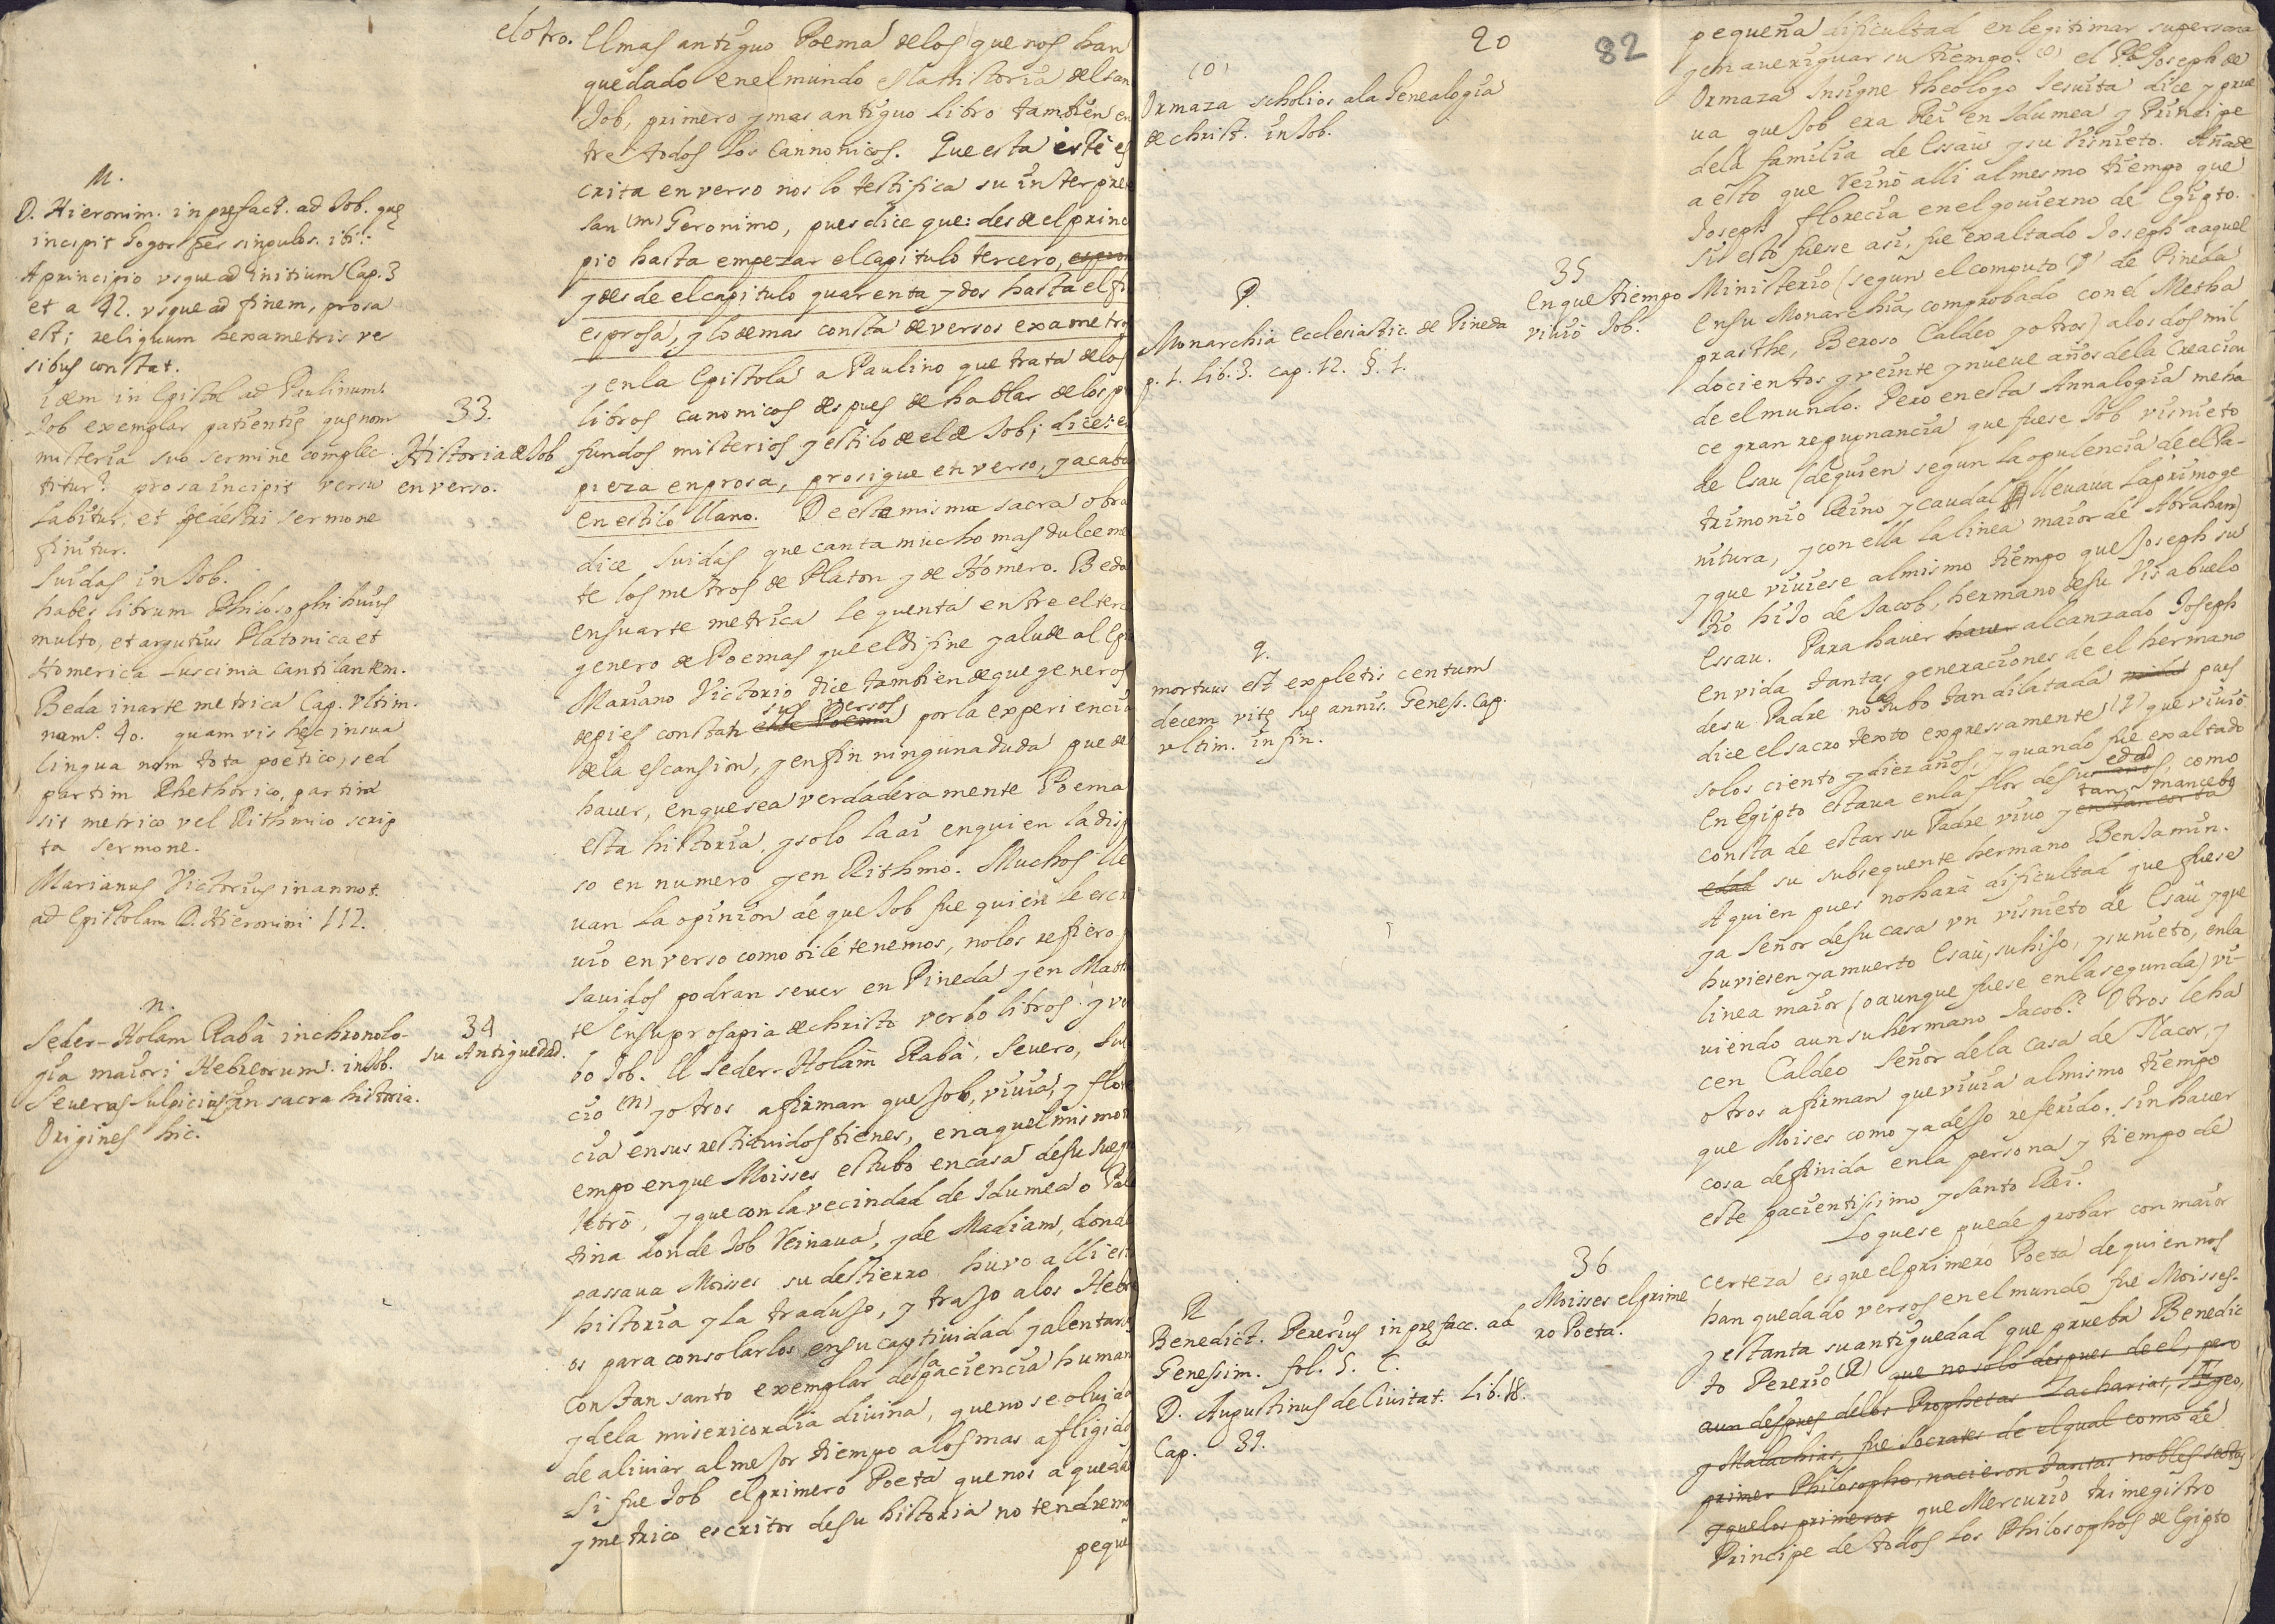 el otro.
M.
D. Hieronim. in prefact. ad Job. quę
incipit Cogor per singulos. ibi:
A principio usque ad initium Cap. 3
et a 42. usque ad finem, prosa
est; reliquum hexametris ver
sibus constat.
idem in Epistol ad Paulinum.
Job exemplar patientię que non
misteria suo sermone complec
titur? prosa incipit versu
labitur, et pedestri sermone
finitur.
Suidas in Job.
habes librum Philosophi huius
multo, et argutius Platonica et
Homerica Luscinia cantilantem.
Beda in arte metrica Cap. ultim.
num.º 40. quamvis hęc in sua
lingua non tota poetico, sed
partim Rhethorico, partim
sit metrico vel Rithmico scrip
ta sermone.
Marianus Victorius in annot.
ad Epistolam D. Hieronimi 112.
n.
Seder-Holam Rabà in chronolo-
gia maiori Hebreorum. in Job.
Severus Sulpicius in sacra historia.
Origines hic.
33.
Historia de Job
en verso.
34
su Antiguedad.
El mas antiguo Poema de los que nos han
quedado en el mundo es la historia del san
Job, primero y mas antiguo libro tambien en
tre todos los Cannonicos. Que esta esté es
crita en verso nos lo testifica su interpre
san (m) Geronimo, pues dice que: desde el princi
pio hasta empezar el Capitulo tercero, es pros
y desde el capitulo quarenta y dos hasta el fi
es prosa, y lo demas consta de versos exametro
y en la Epistola a Paulino que trata de los
libros canonicos despues de hablar de los pro
fundos misterios y estilo de el de Job; dice: em
pieza en prosa, prosigue en verso, y acaba
en estilo llano. De esta misma sacra obra
dice Suidas que canta mucho mas dulceme
te los metros de Platon y de Homero. Beda
en su arte metrica le quenta entre el terc
genero de Poemas que el difine y alude al Epi
Mariano Victorio dice tambien de que generos
de pies constan este Poema sus versos por la experiencia
de la escansion, y en fin ninguna duda puede
haver, en que sea verdaderamente Poema
esta historia, y solo la ai en quien la disp
so en numero y en Rithmo. Muchos lle
van la opinion de que Job fue quien le escri
vio en verso como oi le tenemos, no los refiero
savidos podran se ver en Pineda y en Matt
te en su prosapia de christo verbo libros y ver
bo Job. El Seder-Holam Rabà, Severo, Sul
cio (n) y otros afirman que Job, vivia, y flore
cia en sus restituidos bienes, en aquel mismo ti
empo en que Moisses estubo en casa de su suegro
Jetrò, y que con la vecindad de Idumea o Pale
tina donde Job Reinava, y de Madiam, donde
passava Moisses su destierro huvo alli est
historia y la tradujo, y trajo a los Hebre
os para consolarlos en su captividad y alentarl
con tan santo exemplar de la paciencia human
y de la misericordia divina, que no se olvida
de aliviar al mejor tiempo a los mas afligidos
Si fue Job el primero Poeta que nos a queda
y metrico escritor de su historia no tendremo
peque
20
82
(o)
Ormaza scholios a la Genealogia
de christ. in Job.
P.
Monarchia ecclesiastic. de Pineda
p. 1. Lib. 3. cap. 12. §. 1.
q.
mortuus est expletis centum
decem vitę suę annis. Geness. Cap.
ultim. in fin.
R
Benedict. Pererius in pręfacc. ad
Genesim. fol. 5. C.
D. Augustinus de Civitat. Lib. 18.
Cap. 39.
35
en que tiempo
vivió Job.
36
Moisses el prime
ro Poeta.
pequeña dificultad en legitimar su persona
y en averiguar su tiempo. (o) el Pe Joseph de
Ormaza Insigne theologo Jesuita dice y prue
va que Job era Rei en Idumea y Principe
dela familia de Essaù y su Visnieto. Añade
a esto que Reinò alli al mesmo tiempo que
Joseph florecia en el govierno de Egipto.
Si esto fuese asi, fue exaltado Joseph a aquel
Ministerio (segun el computo (p) de Pineda
en su Monarchia, comprobado con el Metha
prasthe, Beroso Caldeo y otros) a los dos mil
docientos y veinte y nueve años de la Creacion
de el mundo. Pero en esta Annalogia me ha
ce gran repugnancia que fuese Job visnieto
de Esau (de quien segun la opulencia de el Pa-
trimonio Reino y caudal llevava la primoge
nitura, y con ella la linea maior de Abrahan)
y que viviese al mismo tiempo que Joseph su
tio hijo de Jacob, hermano de su Visabuelo
Essau. Para haver haver alcanzado Joseph
en vida tantas generaciones de el hermano
de su Padre no la tubo tan dilatada pues
dice el sacro texto expressamente (q) que vivió
solos ciento y diez años, y quando fue exaltado
en Egipto estava en la flor de su edad años, como
consta de estar su Padre vivo y en tan corta tan mancebo
edad su subsequente hermano Benjamin.
A quien pues no hará dificultad que fuese
ya Señor de su casa un visnieto de Esaù y que
huviesen ya muerto Esaù, su hijo, y su nieto, en la
linea maior (o aunque fuese en la segunda) vi-
viendo aun su hermano Jacob? Otros le ha
cen Caldeo Señor de la Casa de Nacor, y
otros afirman que vivia al mismo tiempo
que Moises como ya dejo referido. sin haver
cosa definida en la persona y tiempo de
este pacientissimo y Santo Rei.
Lo que se puede probar con maior
certeza es que el primero Poeta de quien nos
han quedado versos en el mundo fue Moisses.
y es tanta su antiguedad que prueba Benedic
to Pererio (R) que no solo despues de el, pero
aun despues de los Prophetas Zacharias, Ageo,
y Malachias, fue Socrates de el qual como de
primer Philosopho, nacieron tantas nobles sectas
y que los primeros que Mercurio trimegistro
Principe de todos los Philosophos de Egipto